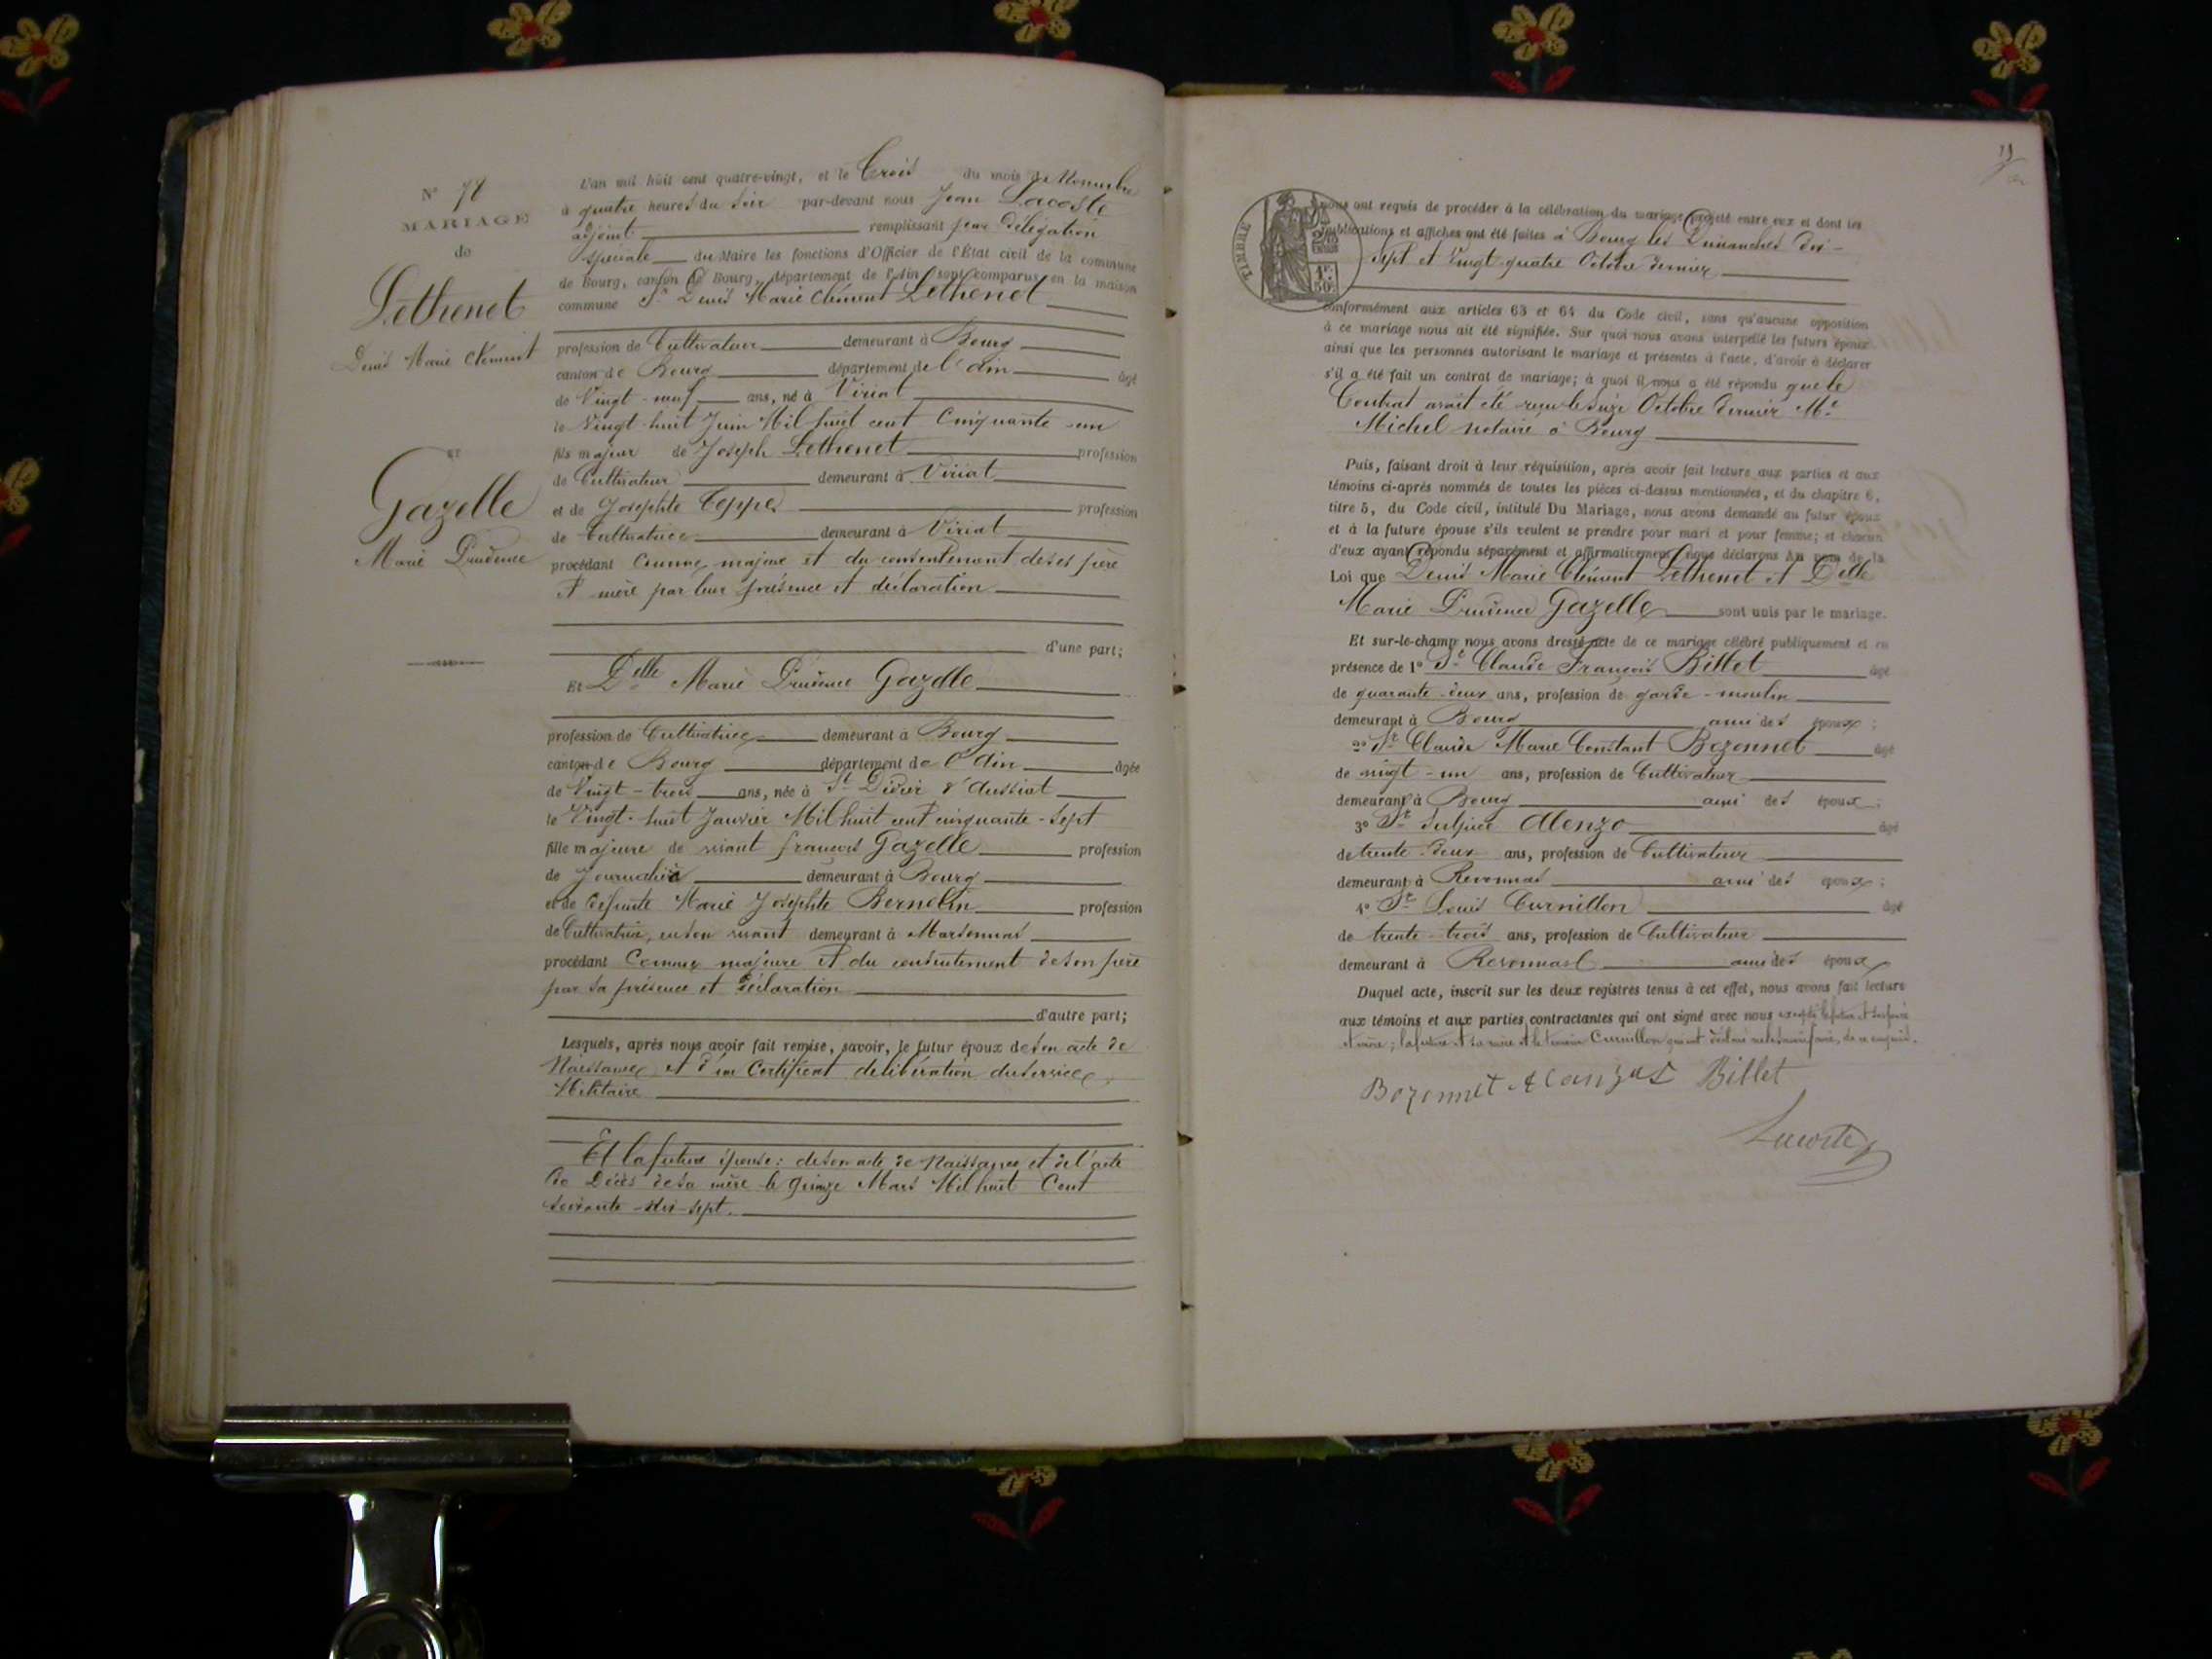 N° 78
MARIAGE
de
Lethenet
Denis Marie Clément
ET
Gazelle
Marie Prudence
L'an mil huit cent quatre-vingt, et le Trois du mois de Novembre
à quatre heures du soir par-devant nous Jean Lacoste
adjoint remplissant par délégation
spéciale du Maire les fonctions d'Officier de l'État civil de la commune
de Bourg, canton de Bourg, département de l'Ain, sont comparus en la maison
commune Sr Denis Marie Clément Lethenet
profession de Cultivateur demeurant à Bourg
canton de Bourg département de l'Ain âgé
de Vingt-neuf ans, né à Viriat
le Vingt-huit Juin Mil huit cent Cinquante-un
fils majeur de Joseph Lethenet profession
de Cultivateur demeurant à Viriat
et de Josephte Ceppe profession
de Cultivatrice demeurant à Viriat
procédant Comme majeur et du consentement de ses père
et mère par leur présence et déclaration
d'une part;
Et Delle Marie Prudence Gazelle
profession de Cultivatrice demeurant à Bourg
canton de Bourg département de l'Ain âgée
de Vingt-trois ans, née à St Didier d'Aussiat
le Vingt-huit Janvier Mil huit cent cinquante-sept
fille majeure de vivant françois Gazelle profession
de Journalier demeurant à Bourg
et de défunte Marie Josephte Bernolin profession
de Cultivatrice, en son vivant demeurant à Marsonnas
procédant Comme majeure et du consentement de son père
par sa présence et déclaration
d'autre part;
Lesquels, après nous avoir fait remise, savoir, le futur époux de son acte de
Naissance et d'un Certificat de libération du service
Militaire
Et la future épouse: de son acte de Naissance et de l'acte
de Décès de sa mère le quinze Mars Mil huit Cent
soixante-dix-sept.
TIMBRE
nous ont requis de procéder à la célébration du mariage projeté entre eux et dont les
publications et affiches ont été faites à Bourg les Dimanches dix-
sept et Vingt quatre Octobre dernier
conformément aux articles 63 et 64 du Code civil, sans qu'aucune opposition
à ce mariage nous ait été signifiée. Sur quoi nous avons interpellé les futurs époux
ainsi que les personnes autorisant le mariage et présentes à l'acte, d'avoir à déclarer
s'il a été fait un contrat de mariage; à quoi il nous a été répondu que le
Contrat avait été reçu le seize Octobre dernier Me
Michel notaire à Bourg
Puis, faisant droit à leur réquisition, après avoir fait lecture aux parties et aux
témoins ci-après nommés de toutes les pièces ci-dessus mentionnées, et du chapitre 6,
titre 5, du Code civil, intitulé Du Mariage, nous avons demandé au futur époux
et à la future épouse s'ils veulent se prendre pour mari et pour femme; et chacun
d'eux ayant répondu séparément et affirmativement, nous déclarons Au nom de la
Loi que Denis Marie Clément Lethenet et Delle
Marie Prudence Gazelle sont unis par le mariage.
Et sur-le-champ nous avons dressé acte de ce mariage célébré publiquement et en
présence de 1° Sr Claude François Billet âgé
de quarante-deux ans, profession de garde-moulin
demeurant à Bourg ami des époux;
2° Sr Claude Marie Constant Bozonnet âgé
de vingt-un ans, profession de Cultivateur
demeurant à Bourg ami des époux;
3° Sr Sulpice Alenzo âgé
de trente-deux ans, profession de Cultivateur
demeurant à Revonnas ami des époux;
4° Sr Louis Curnillon âgé
de trente-trois ans, profession de Cultivateur
demeurant à Revonnas ami des époux
Duquel acte, inscrit sur les deux registres tenus à cet effet, nous avons fait lecture
aux témoins et aux parties contractantes qui ont signé avec nous excepté le futur et ses père
et mère; la future et le témoin Curnillon qui ont déclaré ne le savoir faire, de ce enquis.
Bozonnet Billet
Lacoste